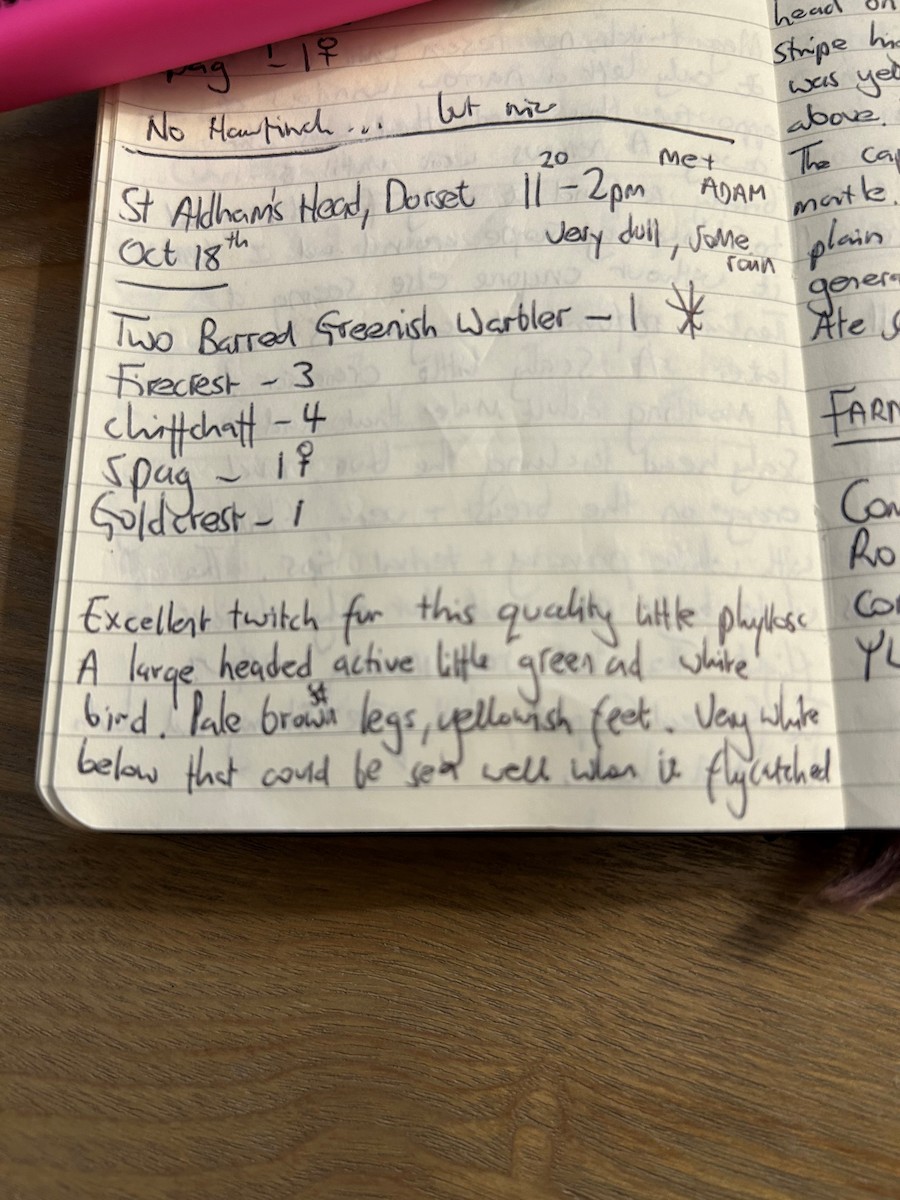 spag - 1♀
No Hawfinch... but nice
St Aldham's Head, Dorset 11 20 - 2pm Met ADAM
Oct 18th Very dull, some rain
Two Barred Greenish Warbler - 1 *
Firecrest - 3
Chiffchaff - 4
Spag - 1♀
Goldcrest - 1
Excellent twitch for this quality little phyllosc
A large headed active little green ad white
bird. Pale brown legs, yellowish feet. Very white
below that could be seen well when it flycatched
head on
stripe
was
above.
The
mantle.
plain
Ate